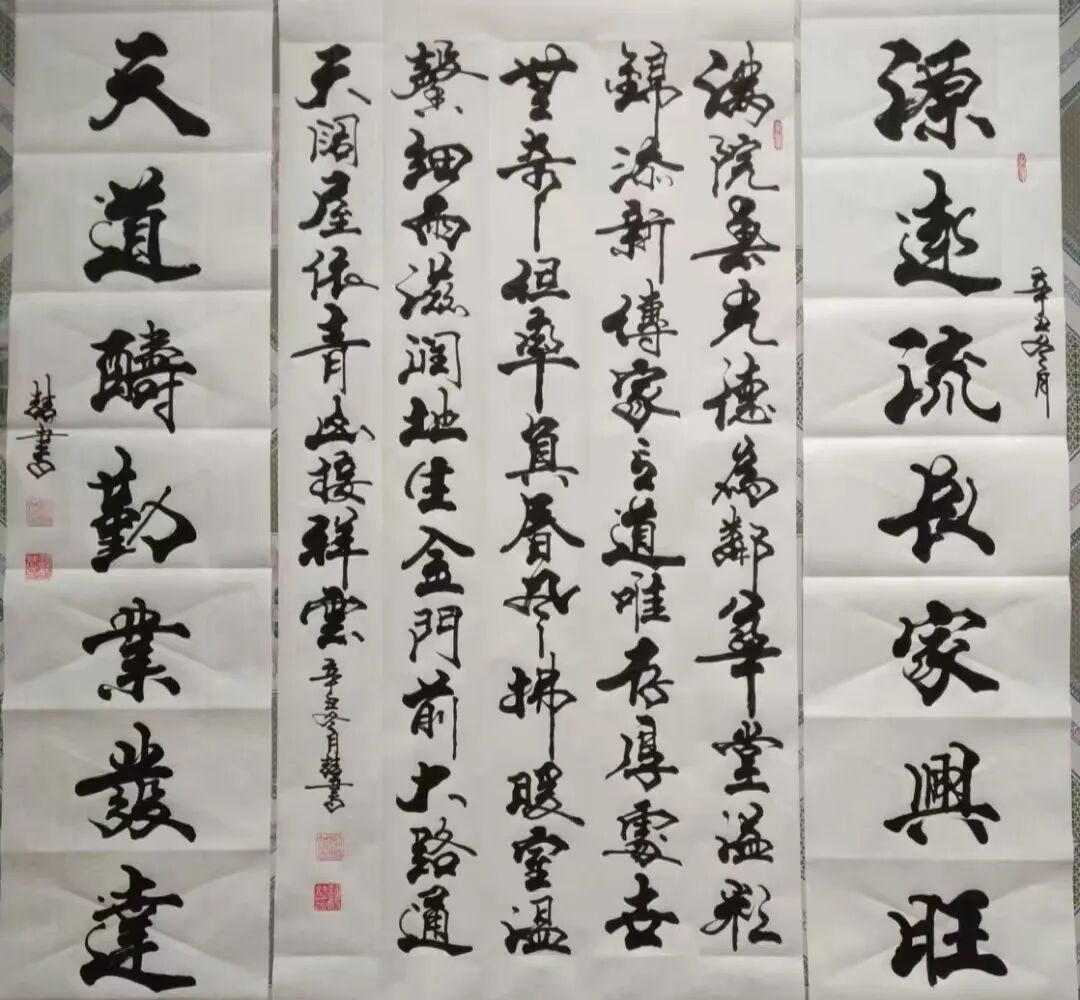 源遠流長家興旺
辛丑冬月
满院光德為鄰華堂溢彩
錦添新傳家之道唯存厚處世
無奇但率真春風拂暖室溫
馨細雨滋润地生金門前大路通
天阔屋依青山接祥雲
辛丑冬月書
天道醻勤業發達
書